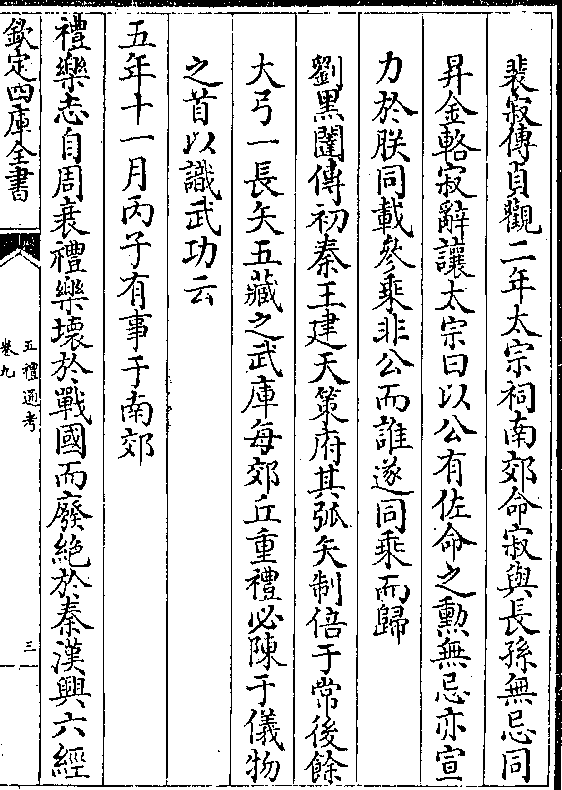 裴寂傳貞觀二年太宗祠南郊命寂與長孫無忌同
昇金輅寂辭讓太宗曰以公有佐命之勲無忌亦宣
力於朕同載參乘非公而誰遂同乘而歸
劉黑闥傳初秦王建天策府其弧矢制倍于常後餘
大弓一長矢五藏之武庫每郊丘重禮必陳于儀物
之首以識武功云
五年十一月丙子有事于南郊
禮樂志自周衰禮樂壞於戰國而廢絶於秦漢興六經
欽定四庫全書
五禮通考
卷九
三